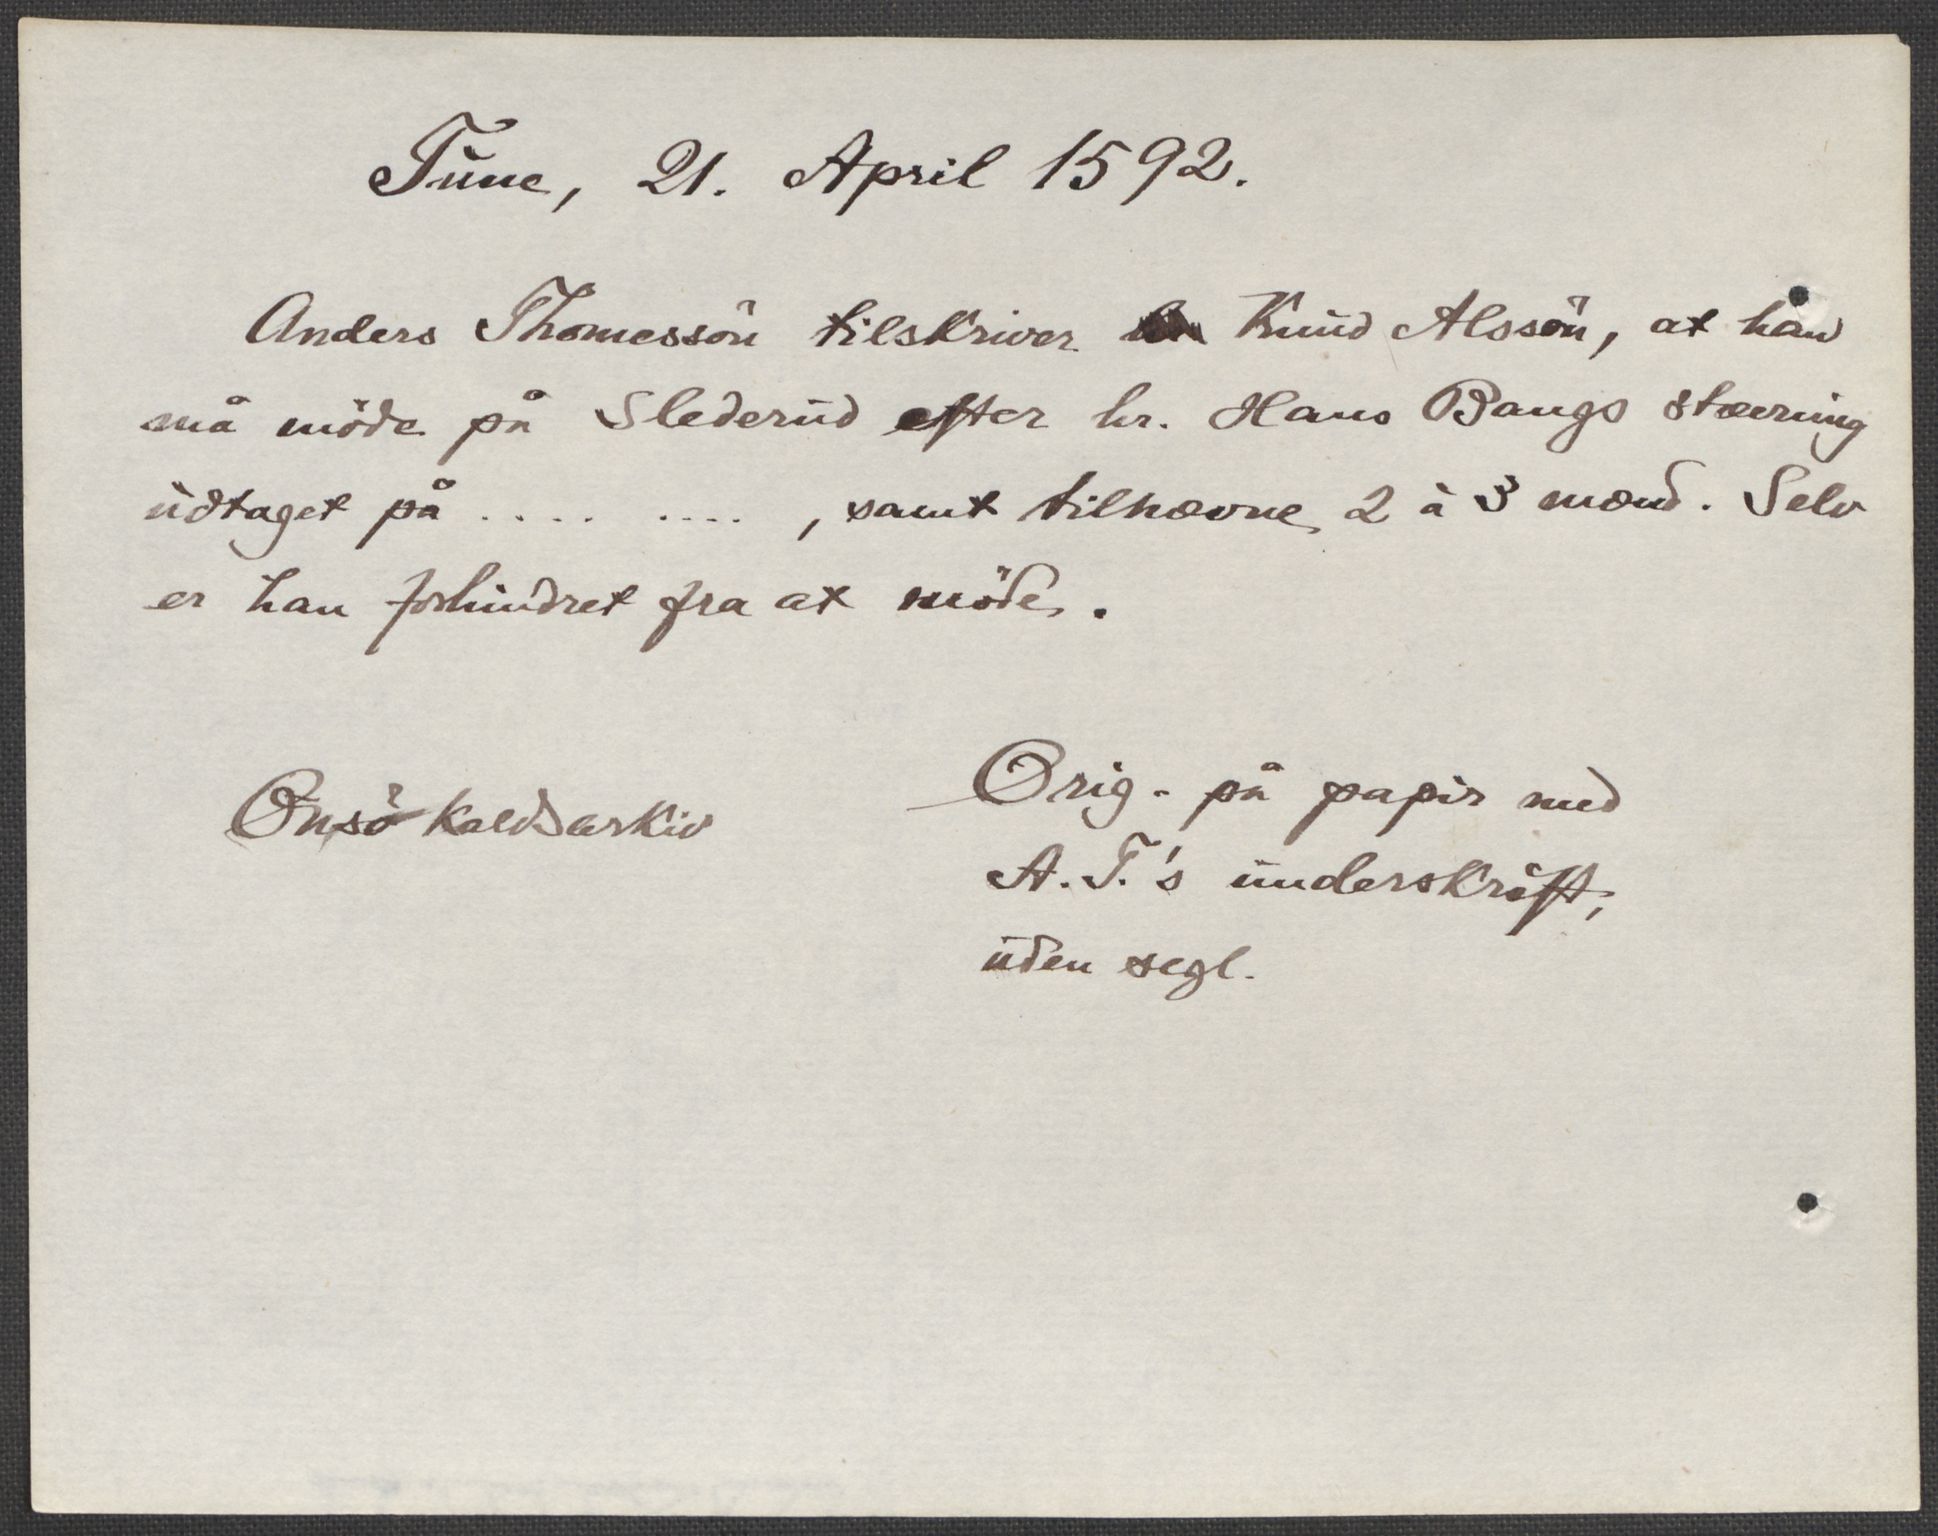 Tune, 21. April 1592.
Anders Thomessön tilskriver Knud Alssön, at han
må möde på Slederud efter hr. Hans Bangs stævning
udtaget på .... .... , samt tilnævne 2 à 3 mænd. Selv
er han forhindret fra at möde.
Onsö kaldsarkiv
Orig. på papir med
A. T.'s underskrift,
uden segl.